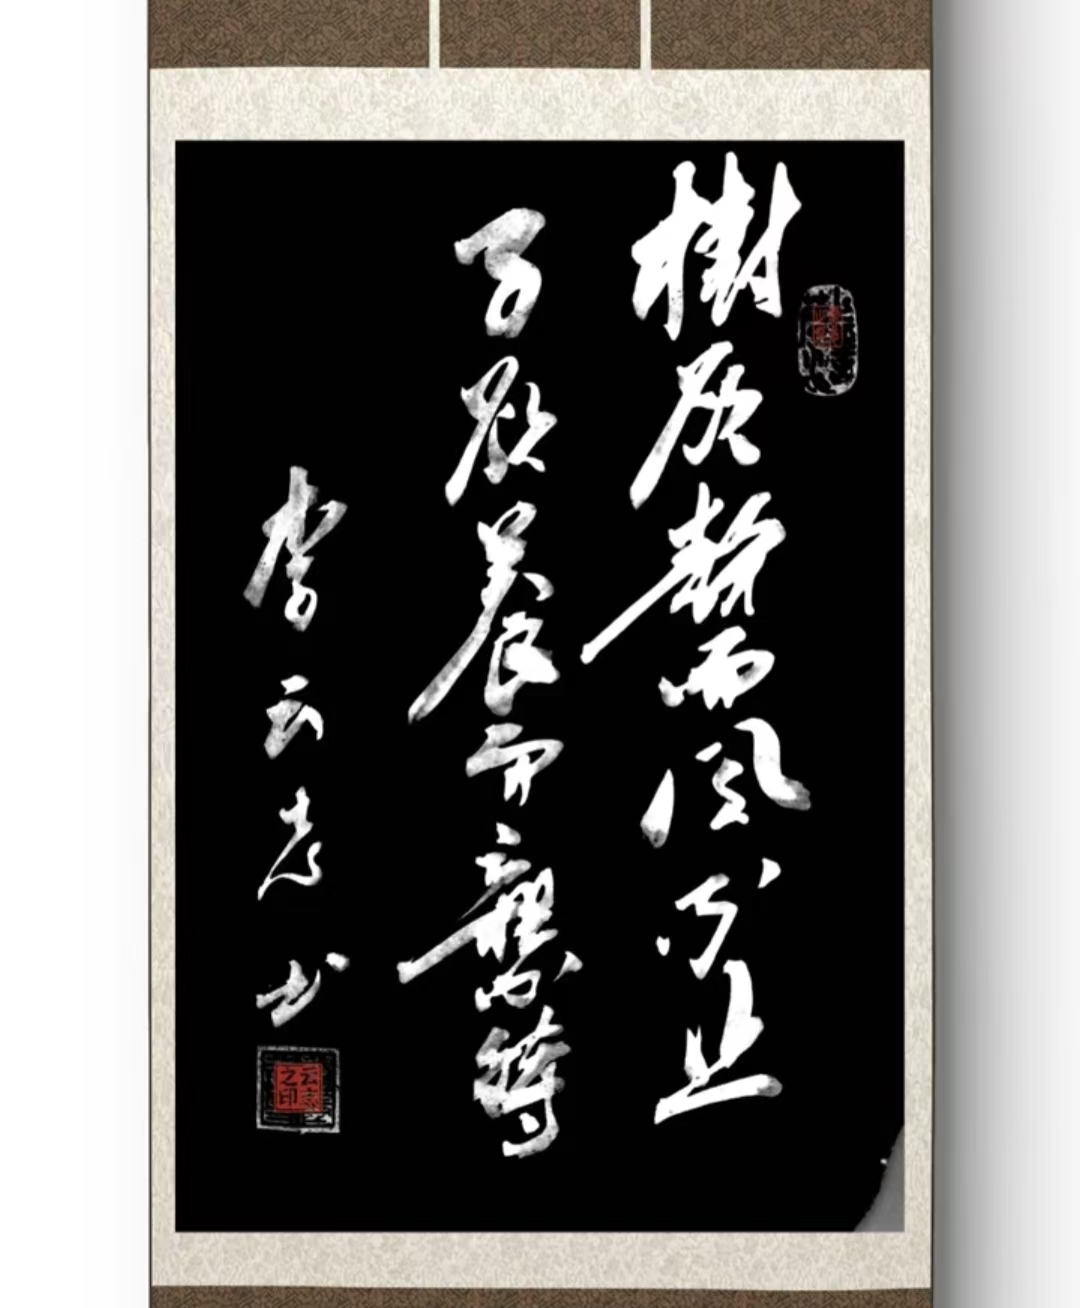 樹欲靜而風不止
子欲養而親不待
李云志书
云志之印